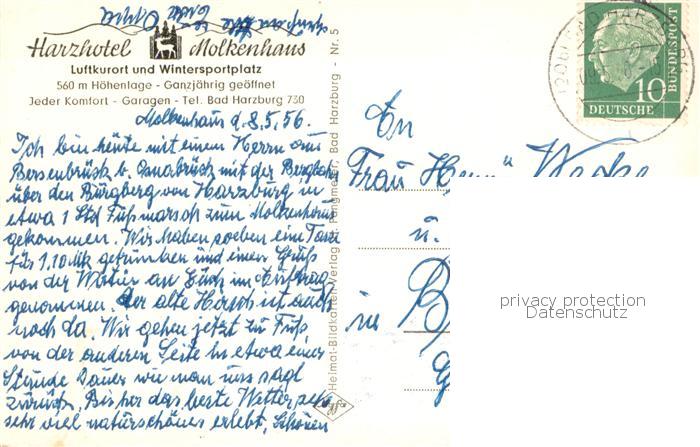 Harzhotel Molkenhaus
Luftkurort und Wintersportplatz
560 m Höhenlage - Ganzjährig geöffnet
Jeder Komfort - Garagen - Tel. Bad Harzburg 730
Molkenhaus d. 8.5.56.
Ich bin heute mit einem Herrn aus
Bersenbrück b. Osnabrück mit der Bergbahn
über den Burgberg von Harzburg in
etwa 1 Std Fußmarsch zum Molkenhaus
gekommen. Wir haben soeben eine Tasse
für 1,10 Mk getrunken und einen Gruß
von der Natur an Euch im
genommen. Der alte Hirsch ist auch
noch da. Wir gehen jetzt zu Fuß
von der anderen Seite in etwa einer
Stunde Dauer wie man uns sagt
zurück. Bisher das beste Wetter
sehr viel naturschönes erlebt. Schönen
Heimat-Bildkarten-Verlag Bad Harzburg - Nr. 5
An
Frau
u.
in
DEUTSCHE
BUNDESPOST
10
privacy protection
Datenschutz